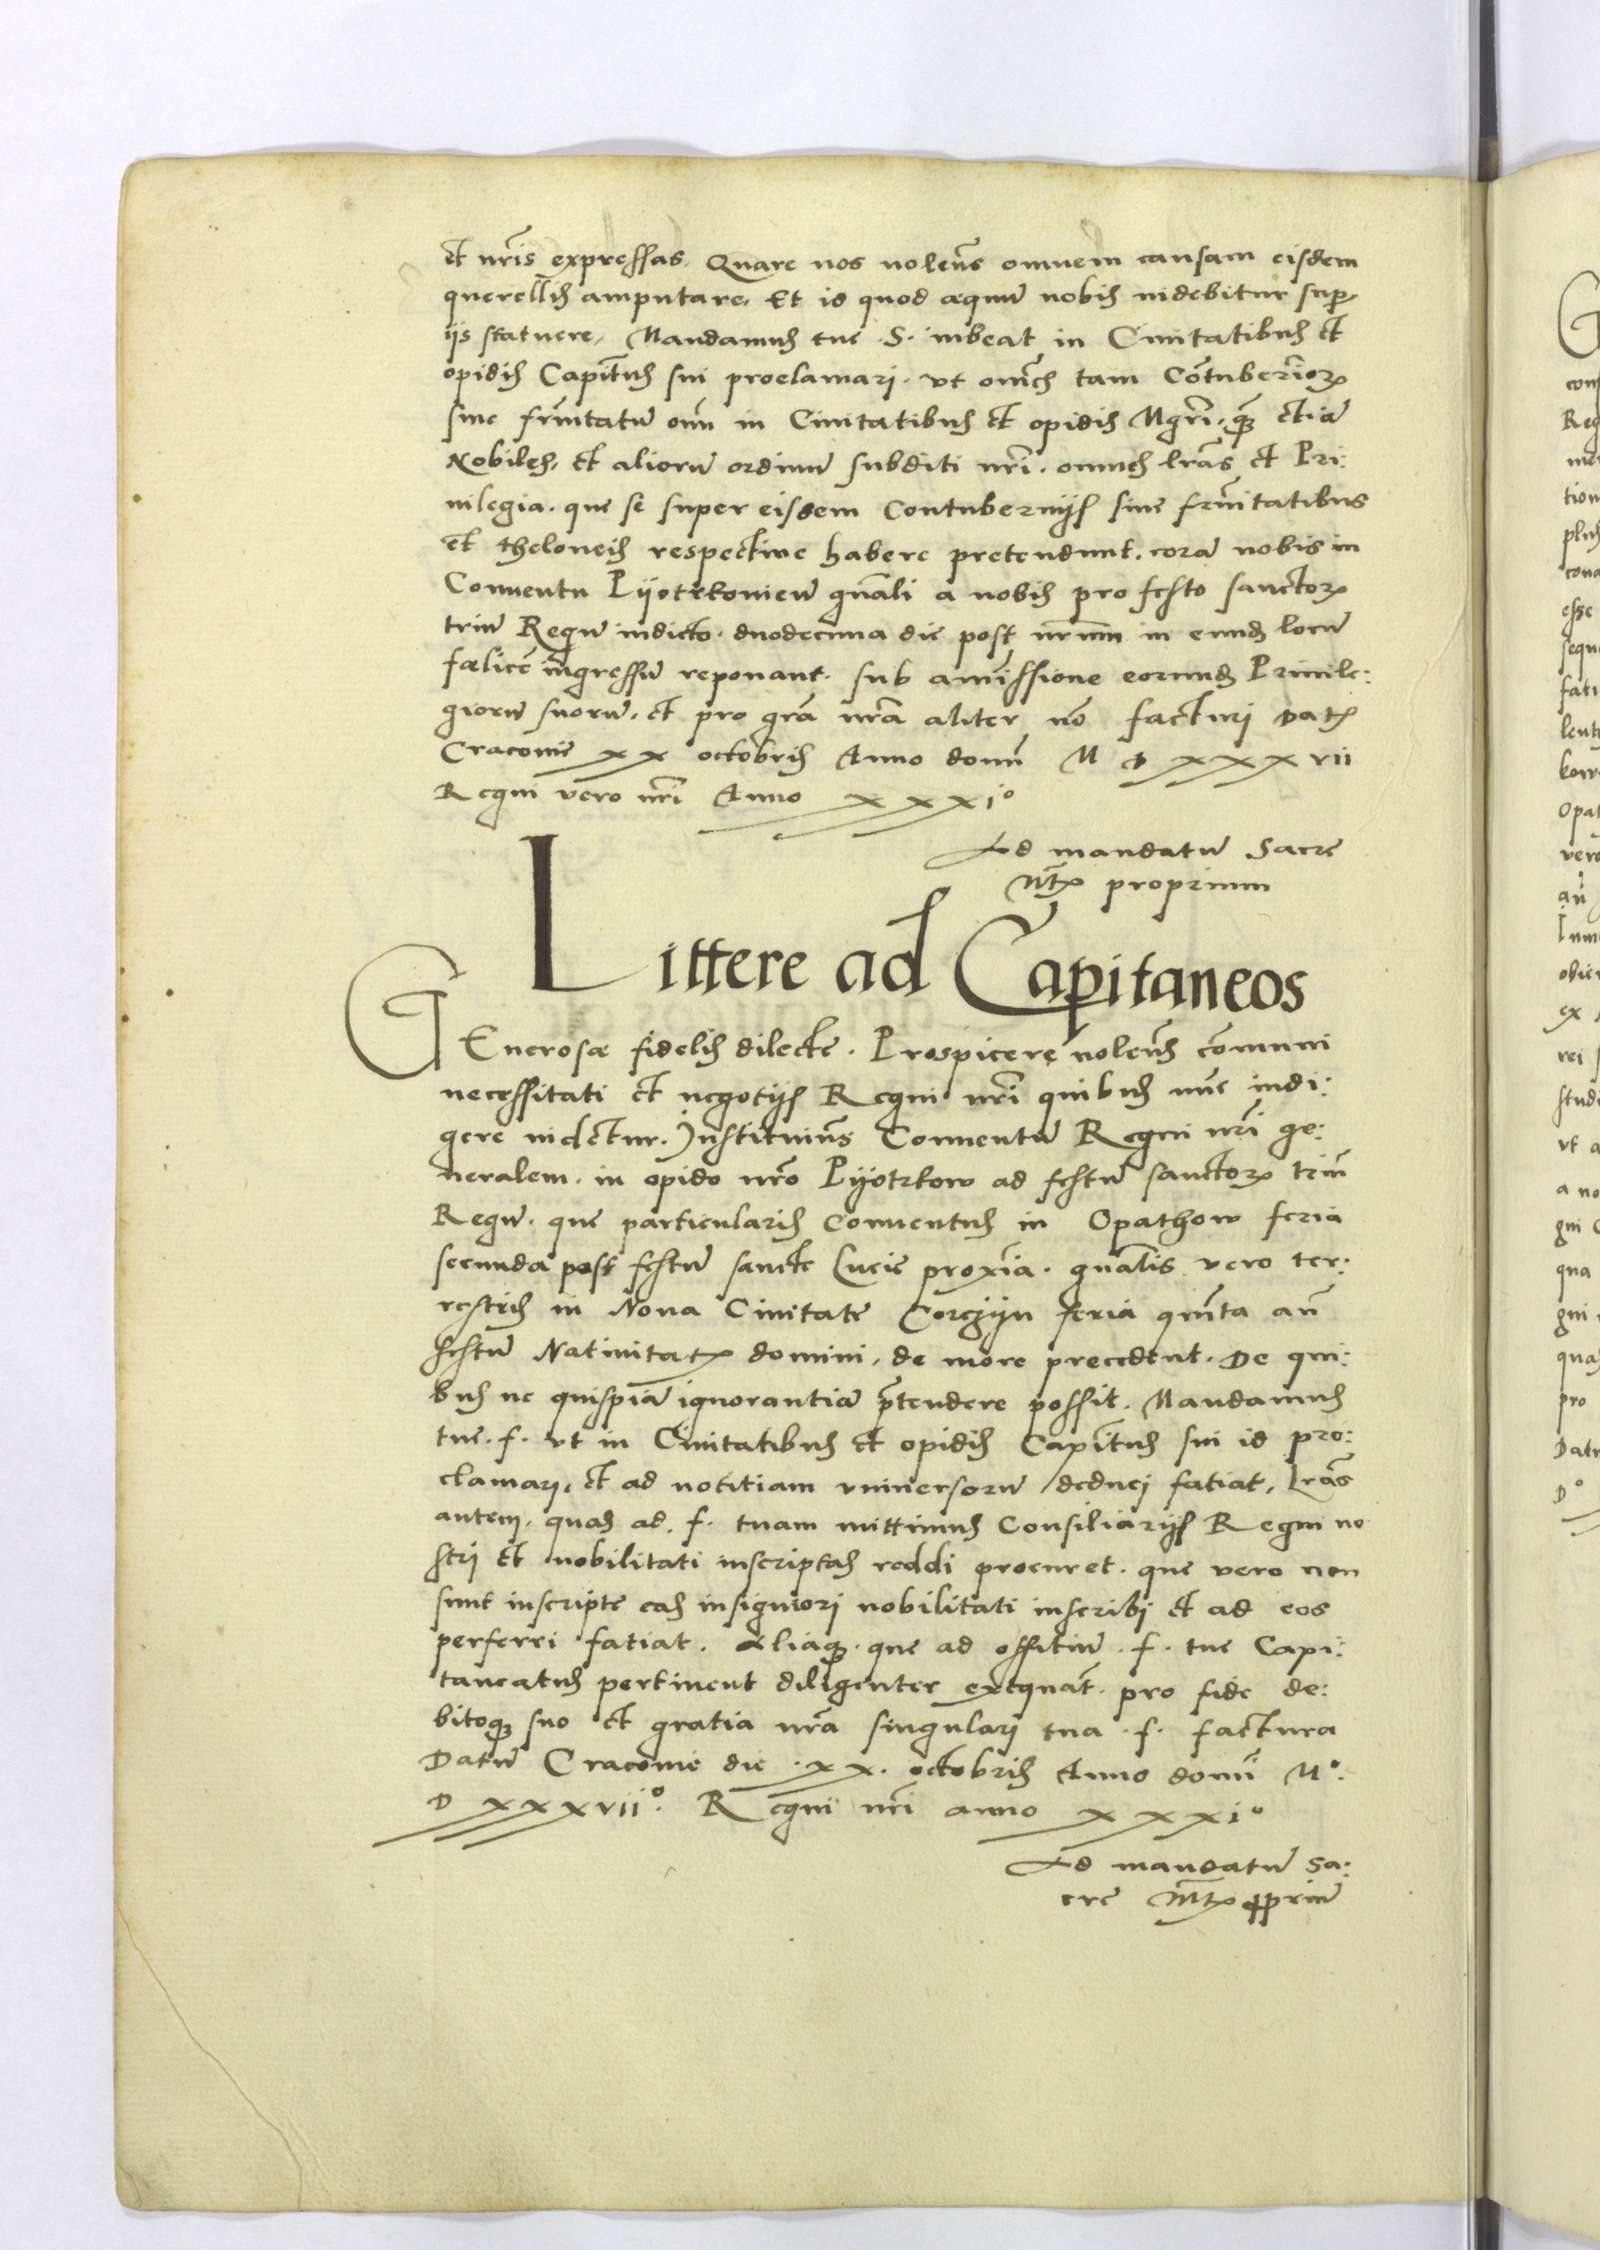 et nr̃is expressas. Quare nos uolen̄s omnem causam eisdem
querellis amputare, Et id quod aequũ nobis uidebitur sup̱
iis statuere, Mandamus tue .S. iubeat in Ciuitatibus et
opidis Capit̃us sui proclamari. vt om̃es tam Cõtuberñiorꝝ
siue fr̃nitatũ om̃ in Ciuitatibus et opidis Mgr̃i. quã etiã
Nobiles, et aliorũ ordinũ subditi nr̃i. omnes lr̃as et Pri:
uilegia. que se super eisdem Contubernijs siue fr̃nitatibus
et theloneis respectiue habere pretendunt. corã nobis in
Conuentu Pyotrkouieñ gñali a nobis pro festo sanctorꝝ
triũ Regũ indicto. duodecima die post nr̃um in eund̃ locũ
faelicẽ ingressũ reponant. sub amissione eorund̃ Priuile:
giorũ suorũ. et pro gr̃a nr̃a aliter nõ facturi Datꝝ
Cracouie xx octobris Anno domĩ M D xxxvii
Regni vero nr̃i Anno xxxi°
Ad mandatũ Sacre
Mt̃ꝝ proprium
Littere ad Capitaneos
GEnerosae fidelis dilecte. Prospicere uolen̄s cõmuni
necessitati et negotijs Regni nr̃i quibus nũc indi:
gere uidetur. Instituimũs Conuentũ Regni nr̃i ge:
neralem. in opido nr̃o Pyotrkow ad festũ sanctorꝝ triũ
Regũ. que particularis Conuentus in Opathow feria
secunda post festũ sancte Lucie proxĩa. gñalis vero ter:
restris in Noua Ciuitate Corczyn feria quinta añ
festũ Natiuitatꝝ domini, de more precedent. De qui:
bus ne quispiã ignorantiã p̃tendere possit. Mandamus
tue. f. vt in Ciuitatibus et opidis Capit̃us sui id pro:
clamari, et ad notitiam vniuersorũ deduci fatiat, Lr̃as
autem, quas ad. f. tuam mittimus Consiliarijs Regni no
stri et nobilitati inscriptas reddi procuret. que vero non
sunt inscripte eas insigniori nobilitati inscribi et ad eos
perferri fatiat. Aliaq̃. que ad offitiũ .f. tue Capi:
taneatus pertinent diligenter exequat̃. pro fide de:
bitoq̃ suo et gratia nr̃a singulari tua .f. factura
Datũ Cracouie die .xx. octobris Anno domĩ M°.
D xxxvii°. Regni nr̃i anno xxxi°
Ad mandatũ sa:
cre Mt̃ꝝ ꝓpriũ